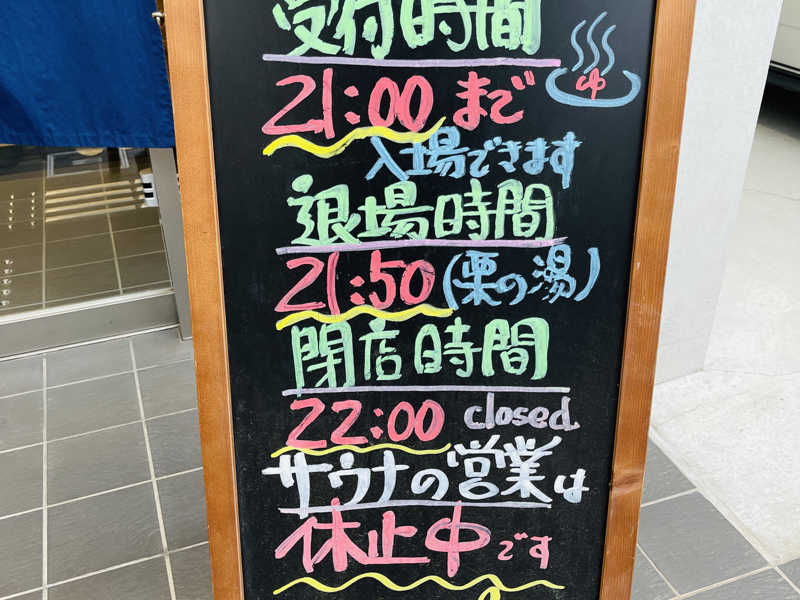 受付時間
21:00 まで
ゆ
入場できます
退場時間
21:50(栗の湯)
閉店時間
22:00 closed
サウナの営業は
休止中です